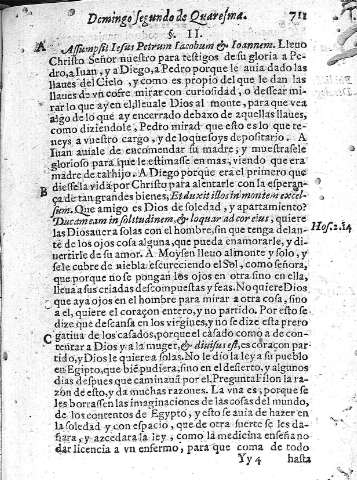 Domingo segundo de Quaresma. 711
§. II.
A Assumpsit Iesus Petrum Iacobum & Ioannem. Lleuo
Christo Señor nuestro para testigos de su gloria a Pe-
dro, a Iuan, y a Diego, a Pedro porque le auia dado las
llaues del Cielo, y como es propio del que le dan las
llaues de vn cofre mirar con curiosidad, o dessear mi-
rar lo que ay en el, lleuale Dios al monte, para que vea
algo de lo que ay encerrado debaxo de aquellas llaues,
como diziendole, Pedro mirad que esto es lo que te-
neys a vuestro cargo, y de lo que soys depositario. A
Iuan auiale de encomendar su madre, y muestrasele
glorioso para que le estimasse en mas, viendo que era
madre de tal hijo. A Diego porque era el primero que
B diesse la vida por Christo para alentarle con la esperan-
ça de tan grandes bienes, Et duxit illos in montem excel-
sum. Que amigo es Dios de soledad, y apartamiento?
Ducam eam in solitudinem, & loquar ad cor eius, quiere Hos. 2. 14
las Dios auer a solas con el hombre, sin que tenga delan-
te de los ojos cosa alguna, que pueda enamorarle, y di-
uertirle de su amor. A Moysen lleuo al monte y solo, y
se le cubre de niebla: escureciendo el Sol, como señora,
que porque no se pongan los ojos en otra sino en ella,
lleua a sus criadas descompuestas y feas. No quiere Dios
que aya ojos en el hombre para mirar a otra cosa, sino
a el, quiere el coraçon entero, y no partido. Por esto se
dize que descansa en los virgines, y no se dize esta prero
C gatiua de los casados, porque el casado como a de con-
tentar a Dios y a la muger, & diuisus est, es coraçon par-
tido, y Dios le quiere a solas. No le dio la ley a su pueblo
en Egipto, que bien pudiera, sino en el desierto, y algunos
dias despues que caminaua por el. Pregunta Filon la ra-
zon de esto, y da muchas razones. La vna es, porque se
les borrassen las imaginaciones de las cosas del mundo,
de los contentos de Egypto, y esto se auia de hazer en
la soledad y con espacio, que de otra suerte se les da-
ñara, y azedara la ley, como la medicina enseña no
dar licencia a vn enfermo, para que coma de todo
Yy 4 hasta